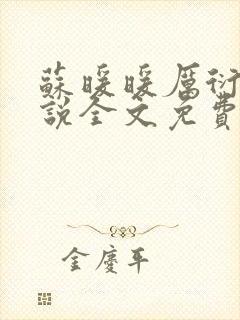 蘇暖暖厲衍
說全文免費
金慶平